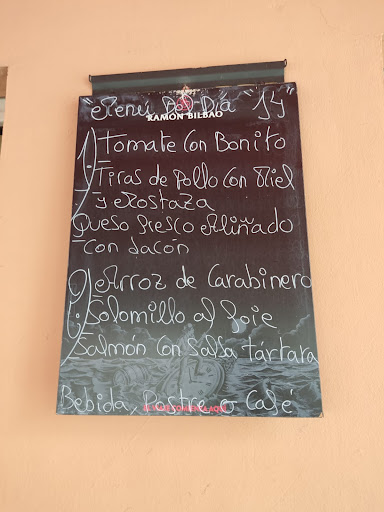 Menú Del Día "14
RAMÓN BILBAO
1) Tomate Con Bonito
- Tiras de Pollo Con Miel
y Mostaza
Queso fresco Aliñado
- Con Jacón
2) Arroz de Carabinero
- Solomillo al foie
- Salmón Con Salsa tártara
EL VIAJE COMIENZA AQUÍ
Bebida, Postre o Café